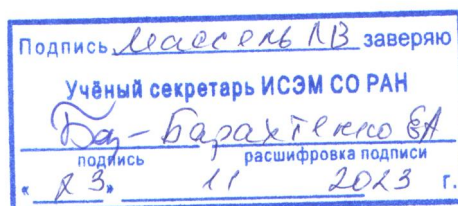 Подпись Массель ЛВ заверяю
Учёный секретарь ИСЭМ СО РАН
Бар – Барахтенко ЕА
подпись расшифровка подписи
« 23 » 11 2023 г.